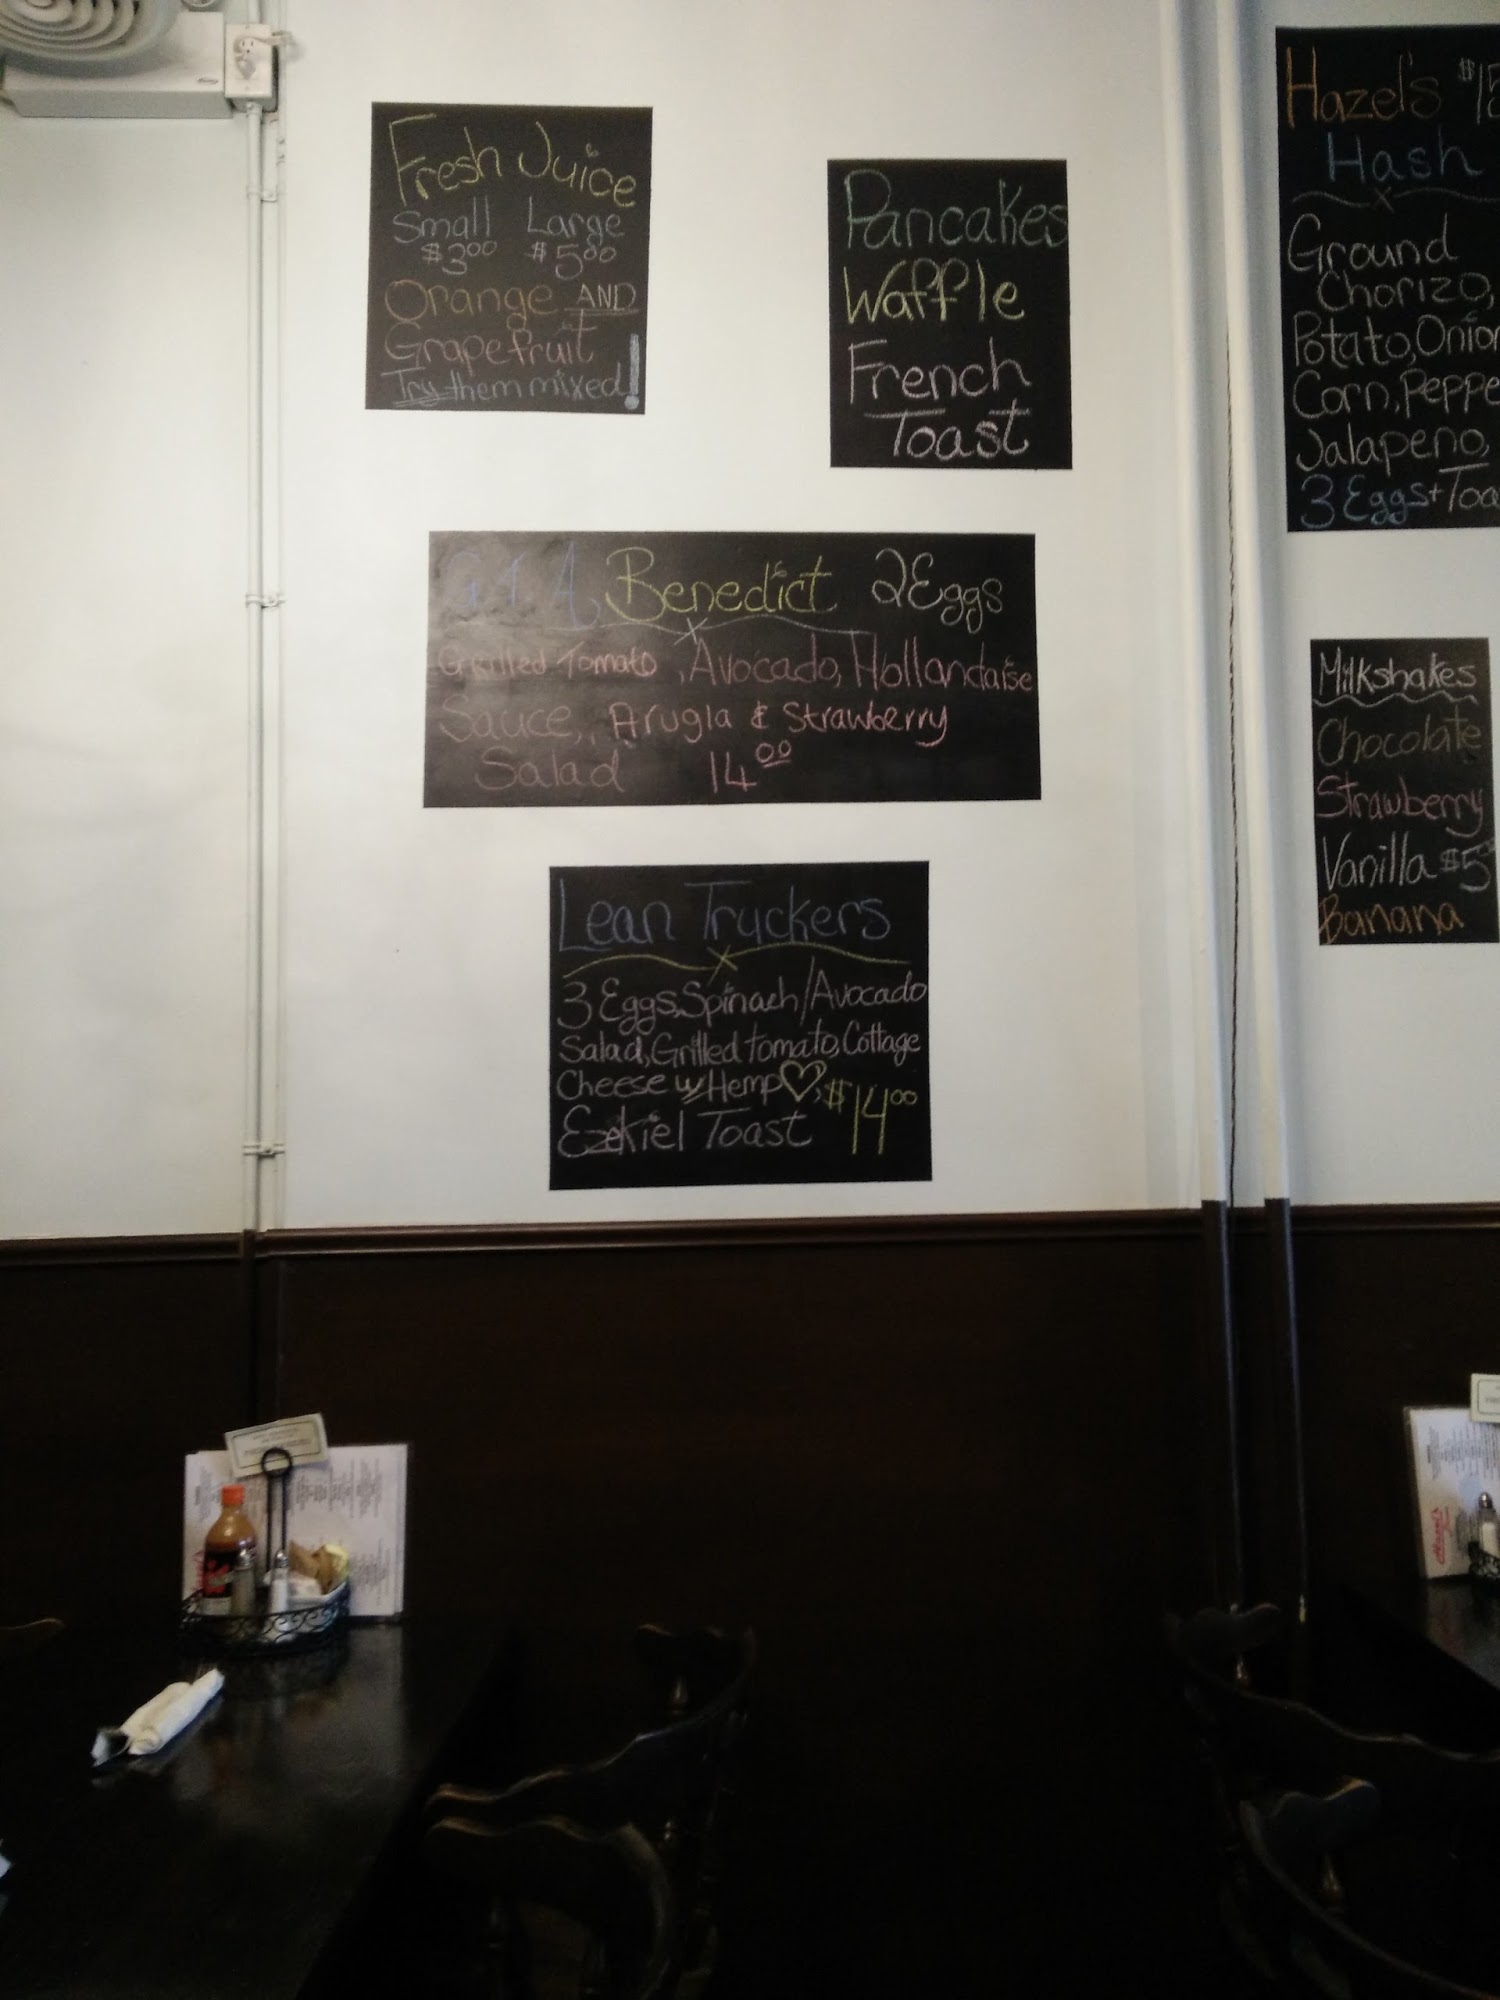 Fresh Juice
Small Large
$3.00 $5.00
Orange AND
Grapefruit
Try them mixed!
Pancakes
Waffle
French
Toast
G.T.A Benedict 2 Eggs
Grilled Tomato, Avocado, Hollandaise
Sauce, Arugla & Strawberry
Salad 14.00
Lean Truckers
3 Eggs, Spinach/Avocado
Salad, Grilled tomato, Cottage
Cheese w/ Hemp♡, $14.00
Ezekiel Toast
Hazel's
Hash
Ground
Chorizo,
Potato, Onion
Corn, Peppe
Jalapeno,
3 Eggs + Toa
Milkshakes
Chocolate
Strawberry
Vanilla $5
Banana